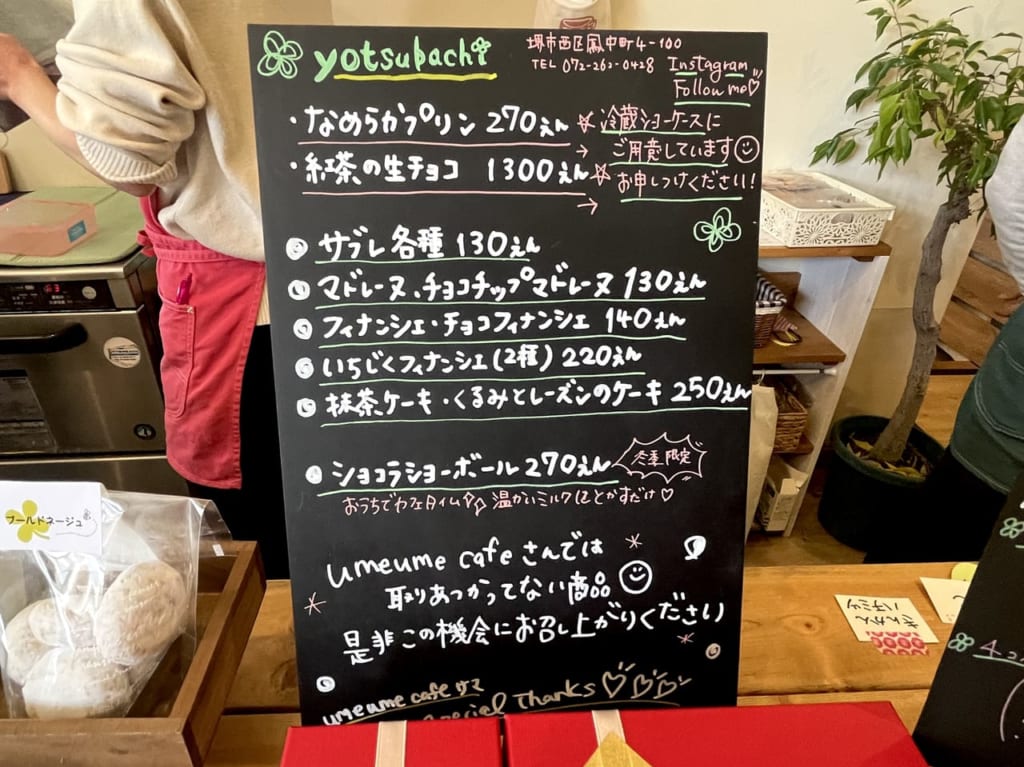 yotsubachi
堺市西区鳳中町4-100
TEL 072-263-0428
Instagram
Follow me♡
・なめらかプリン 270えん
☆冷蔵ショーケースに
ご用意しています☺
・紅茶の生チョコ 1300えん
☆お申しつけください!
サブレ各種 130えん
マドレーヌ、チョコチップマドレーヌ 130えん
フィナンシェ・チョコフィナンシェ 140えん
いちじくフィナンシェ(2種) 220えん
抹茶ケーキ・くるみとレーズンのケーキ 250えん
ショコラショーボール 270えん
冬季限定
おうちでカフェタイム 温かいミルクにとかすだけ♡
umeume cafeさんでは
取りあつかってない商品☺
是非この機会にお召し上がりください
umeume cafeサマ
special Thanks♡♡♡
ブールドネージュ